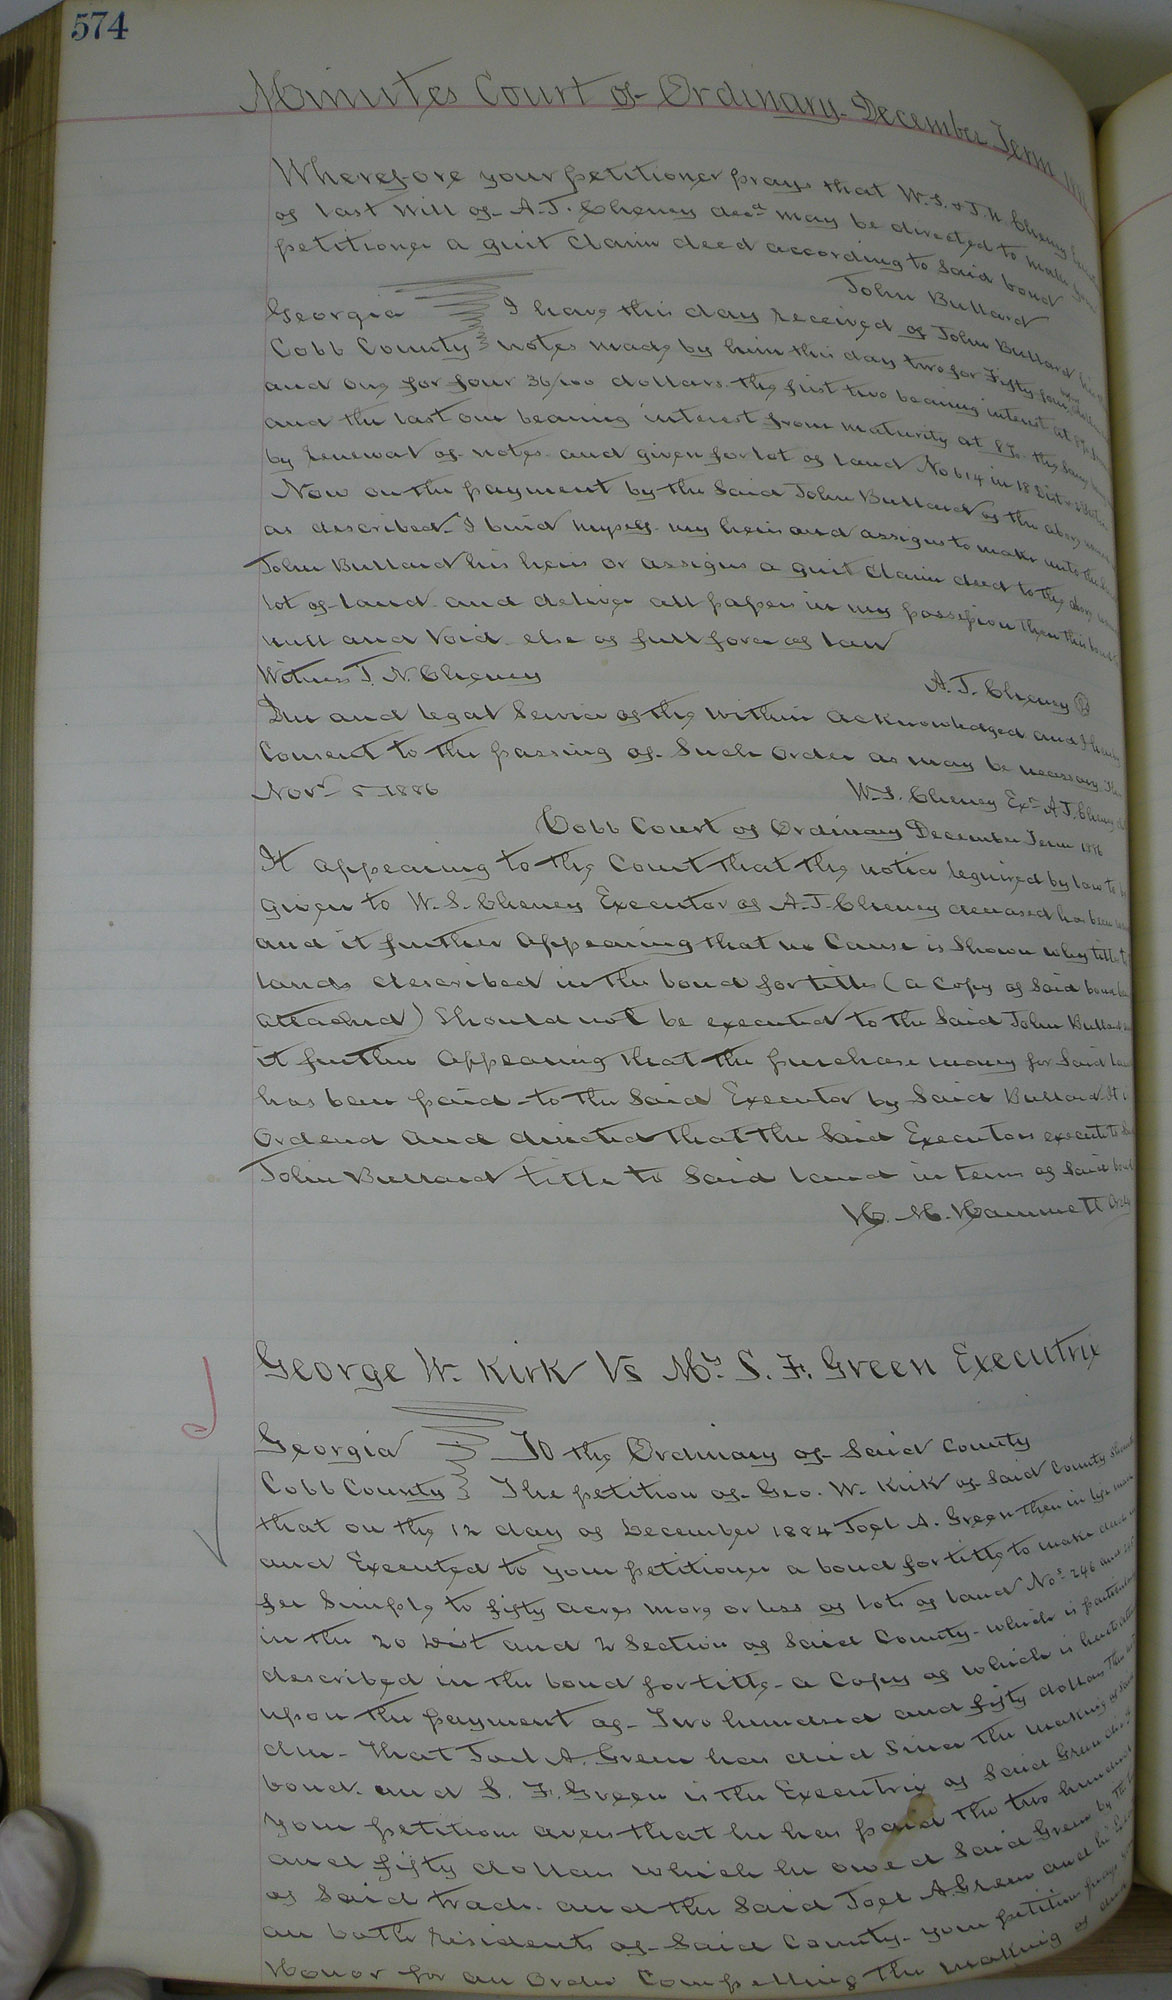 574
Minutes Court of Ordinary December Term
Wherefore your petitioner prays that W.S. & J.N. Cheney
of last Will of A.J. Cheney decd may be directed to make your
petitioner a quit Claim deed according to Said bond
John Bullard
Georgia I have this day received of John Bullard
Cobb County notes made by him this day two for Fifty four
and one for four 36/100 dollars the first two bearing interest at 8%
and the last one bearing interest from maturity at 8% the same
by renewal of notes and given for lot of land No 614 in 18 Dist &
Now on the payment by the Said John Bullard of the above
as described I bind myself my heirs and assigns to make unto the
John Bullard his heirs or assigns a quit Claim deed to the above
lot of land and deliver all papers in my possession then this bond
null and Void else of full force of law
Witness T. N. Cheney
A. J. Cheney
Due and legal Service of the within acknowledged and I hereby
Consent to the passing of Such Order as may be necessary This
Novr 5 1886
W.S. Cheney Exr A.J. Cheney
Cobb Court of Ordinary December Term 1886
It appearing to the Court that the notice required by law to be
given to W. S. Cheney Executor of A.J. Cheney deceased has been
and it further appearing that no Cause is Shown why titles to
lands described in the bond for titles (a Copy of Said bond
attached) Should not be executed to the Said John Bullard
it further appearing that the purchase money for Said
has been paid to the Said Executor by Said Bullard It is
Ordered and directed that the Said Executors execute to
John Bullard title to Said land in terms of Said bond
H. M. Hammett Ordy
George W. Kirk Vs Mrs S. F. Green Executrix
Georgia To the Ordinary of Said County
Cobb County The petition of Geo. W. Kirk of Said County
that on the 12 day of December 1884 Joel A. Green then in life made
and Executed to your petitioner a bond for title to make deed in
fee Simple to fifty acres more or less of lots of land Nos 246 and
in the 20 Dist and 2 Section of Said County which is particularly
described in the bond for title a Copy of which is hereto
upon the payment of Two hundred and fifty dollars
due That Joel A. Green has died Since the making of Said
bond. and S. F. Green is the Executrix of Said Green
Your petitioner avers that he has paid the two hundred
and fifty dollars which he owed Said Green by the
of Said trade and the Said Joel A Green and his
are both residents of Said County your petitioner prays your
Honor for an Order Compelling the making of